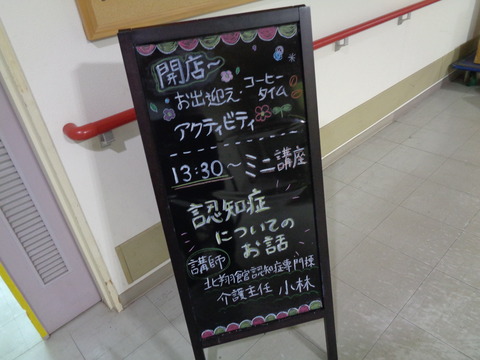 開店〜
お出迎え・コーヒー
タイム
アクティビティ
13:30〜ミニ講座
認知症
についての
お話
講師
北翔館認知症専門棟
介護主任 小林